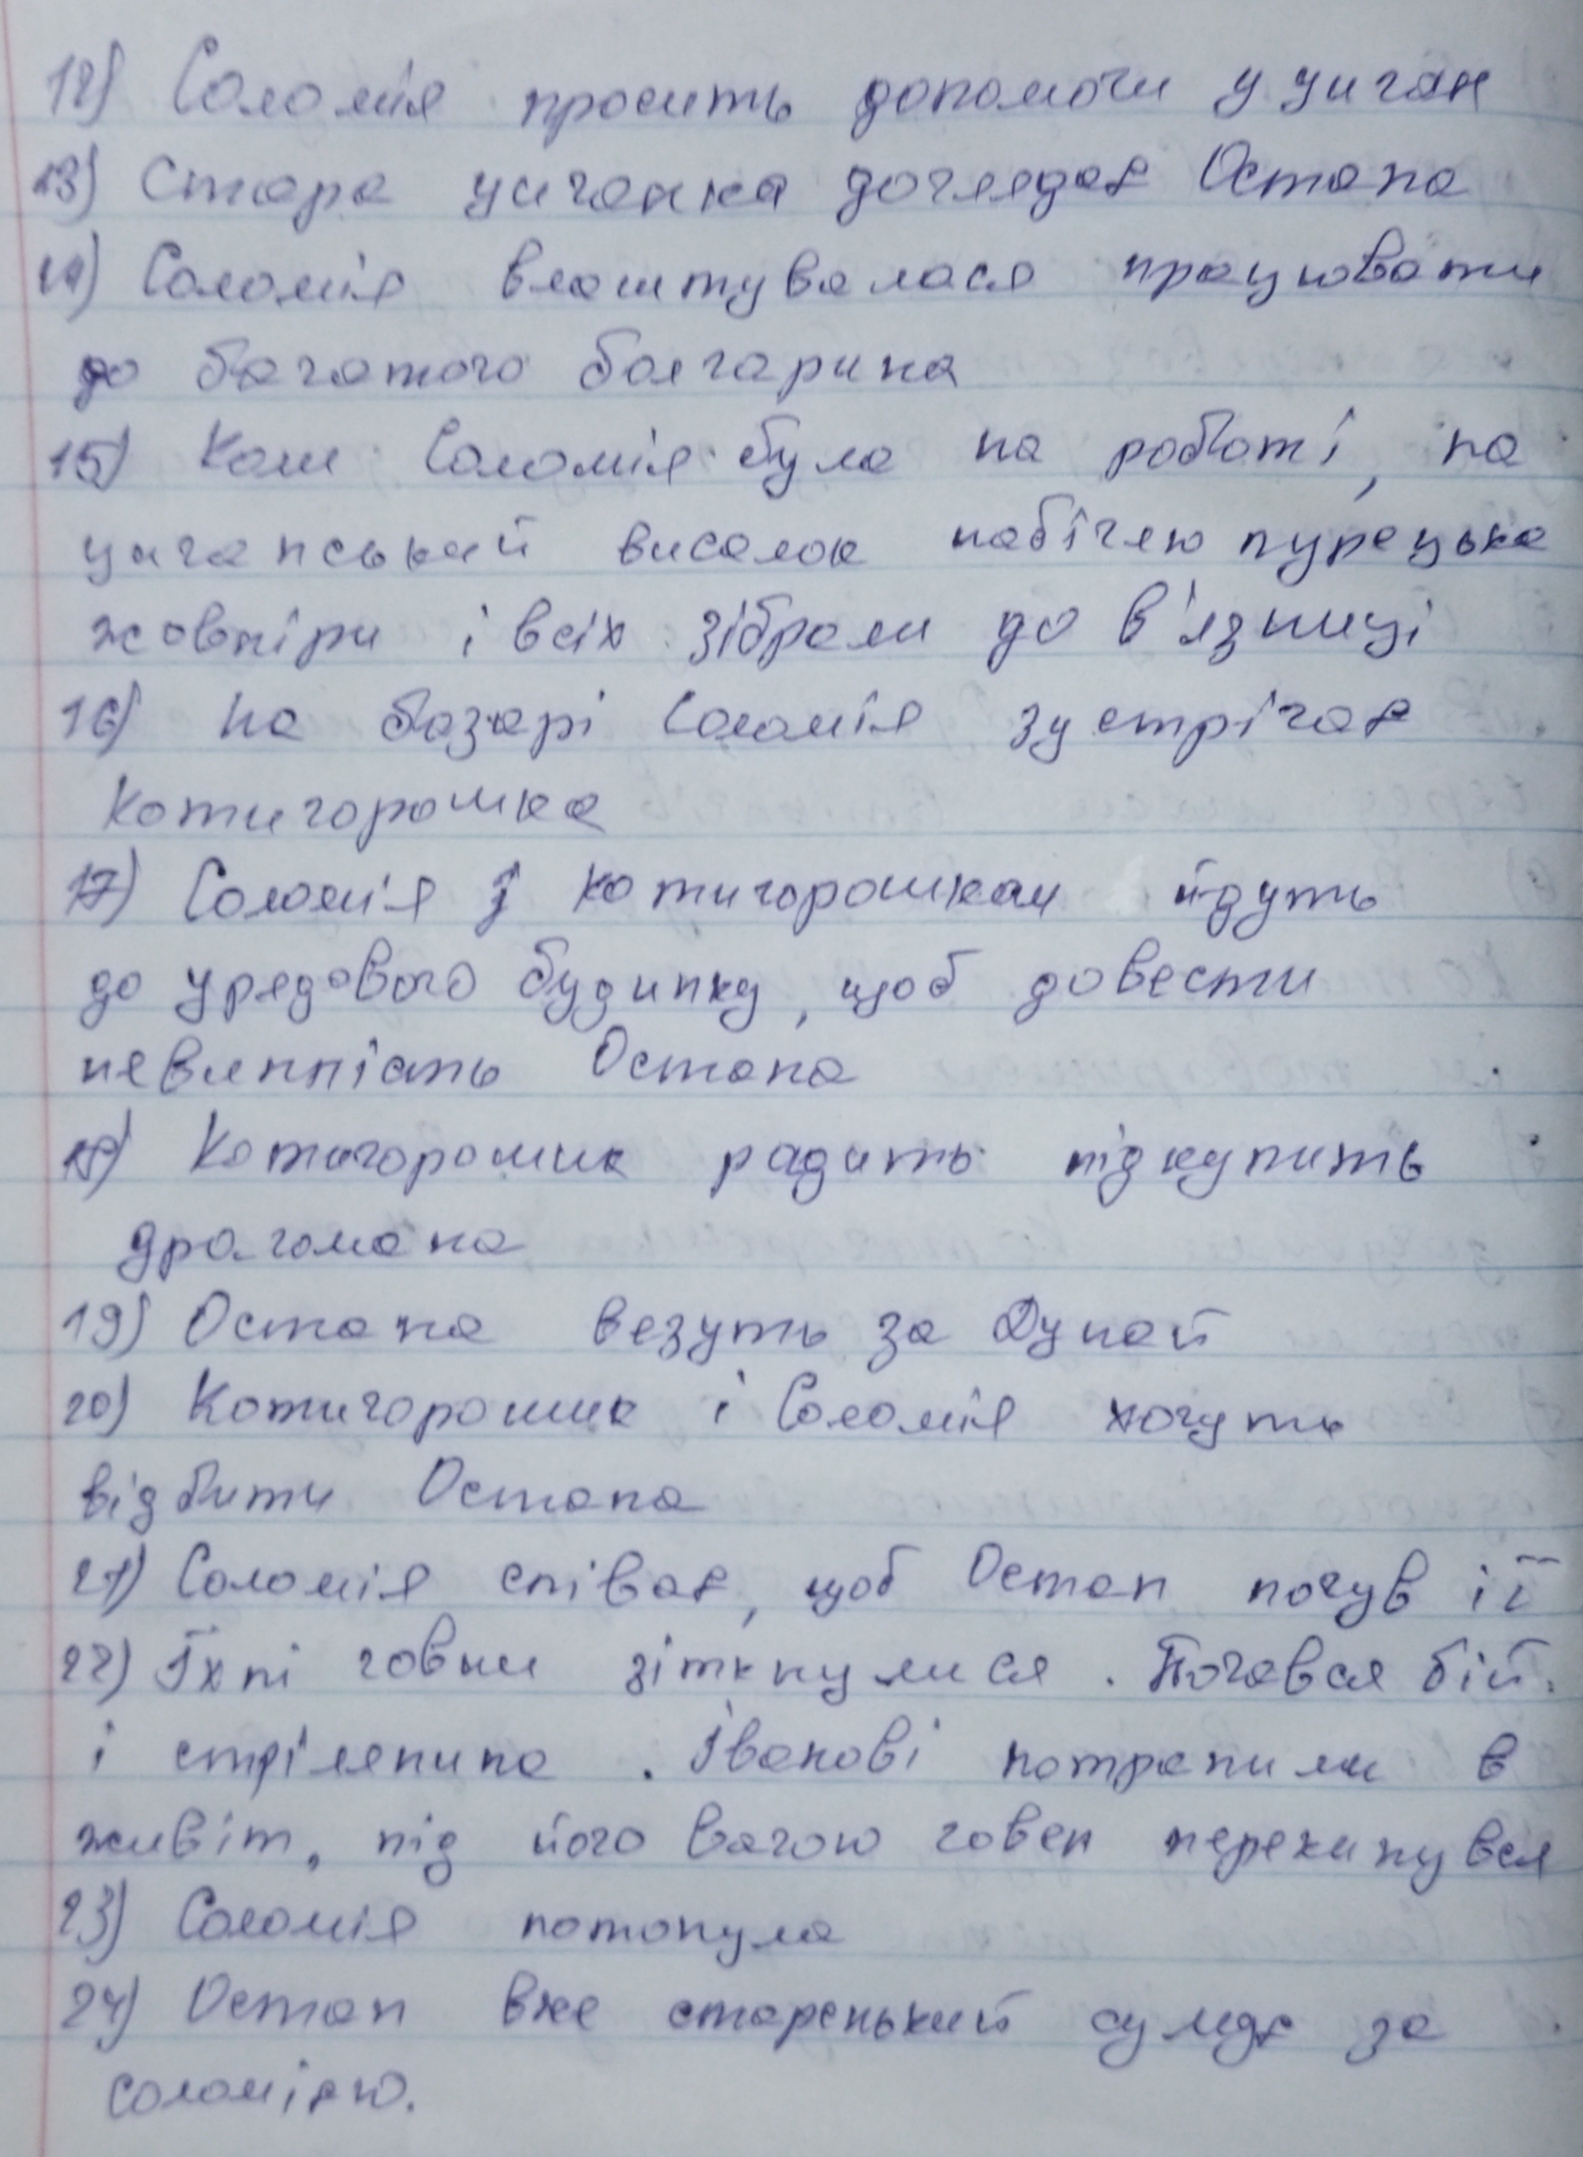 12) Соломія просить допомоги у циган
13) Стара циганка доглядає Остапа
14) Соломія влаштувалася працювати
до багатого болгарина
15) Коли Соломія була на роботі, на
циганський виселок набігли турецька
жовніри і всіх зібрали до в'язниці
16) На базарі Соломія зустрічає
Котигорошка
17) Соломія з Котигорошком йдуть
до урядового будинку, щоб довести
невинність Остапа
18) Котигорошик радить підкупить
драгомана
19) Остапа везуть за Дунай
20) Котигорошик і Соломія хочуть
відбити Остапа
21) Соломія співає, щоб Остап почув її
22) Їхні човни зіткнулися. Почався бій
і стрілянина. Іванові потрапили в
живіт, під його вагою човен перекинувся
23) Соломія потонула
24) Остап вже старенький сумує за
Соломією.